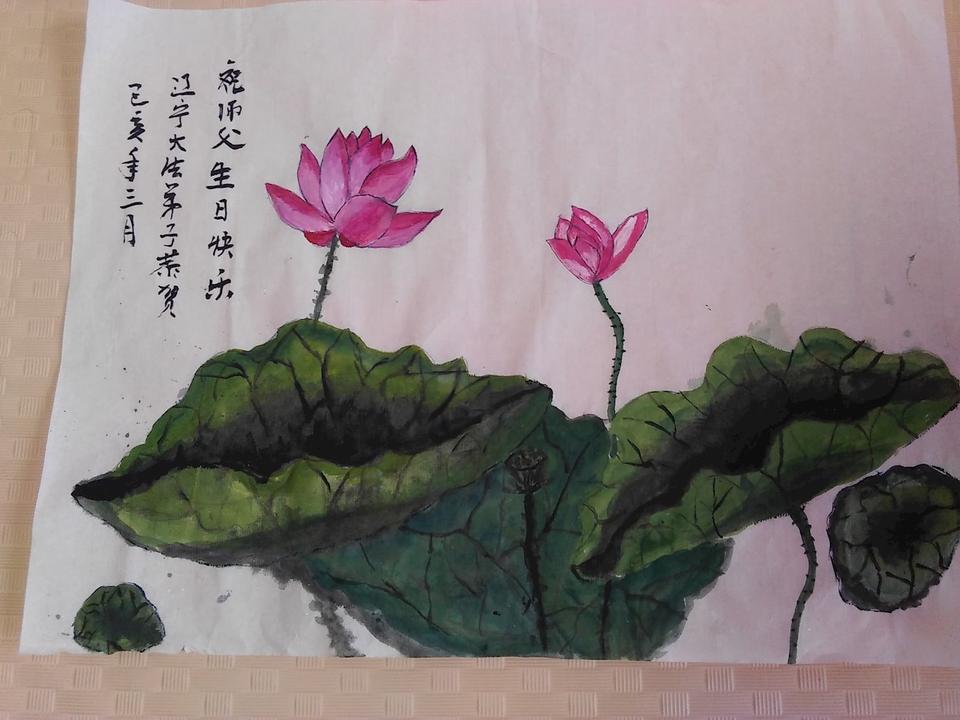 祝师父生日快乐
辽宁大法弟子恭贺
己亥年三月